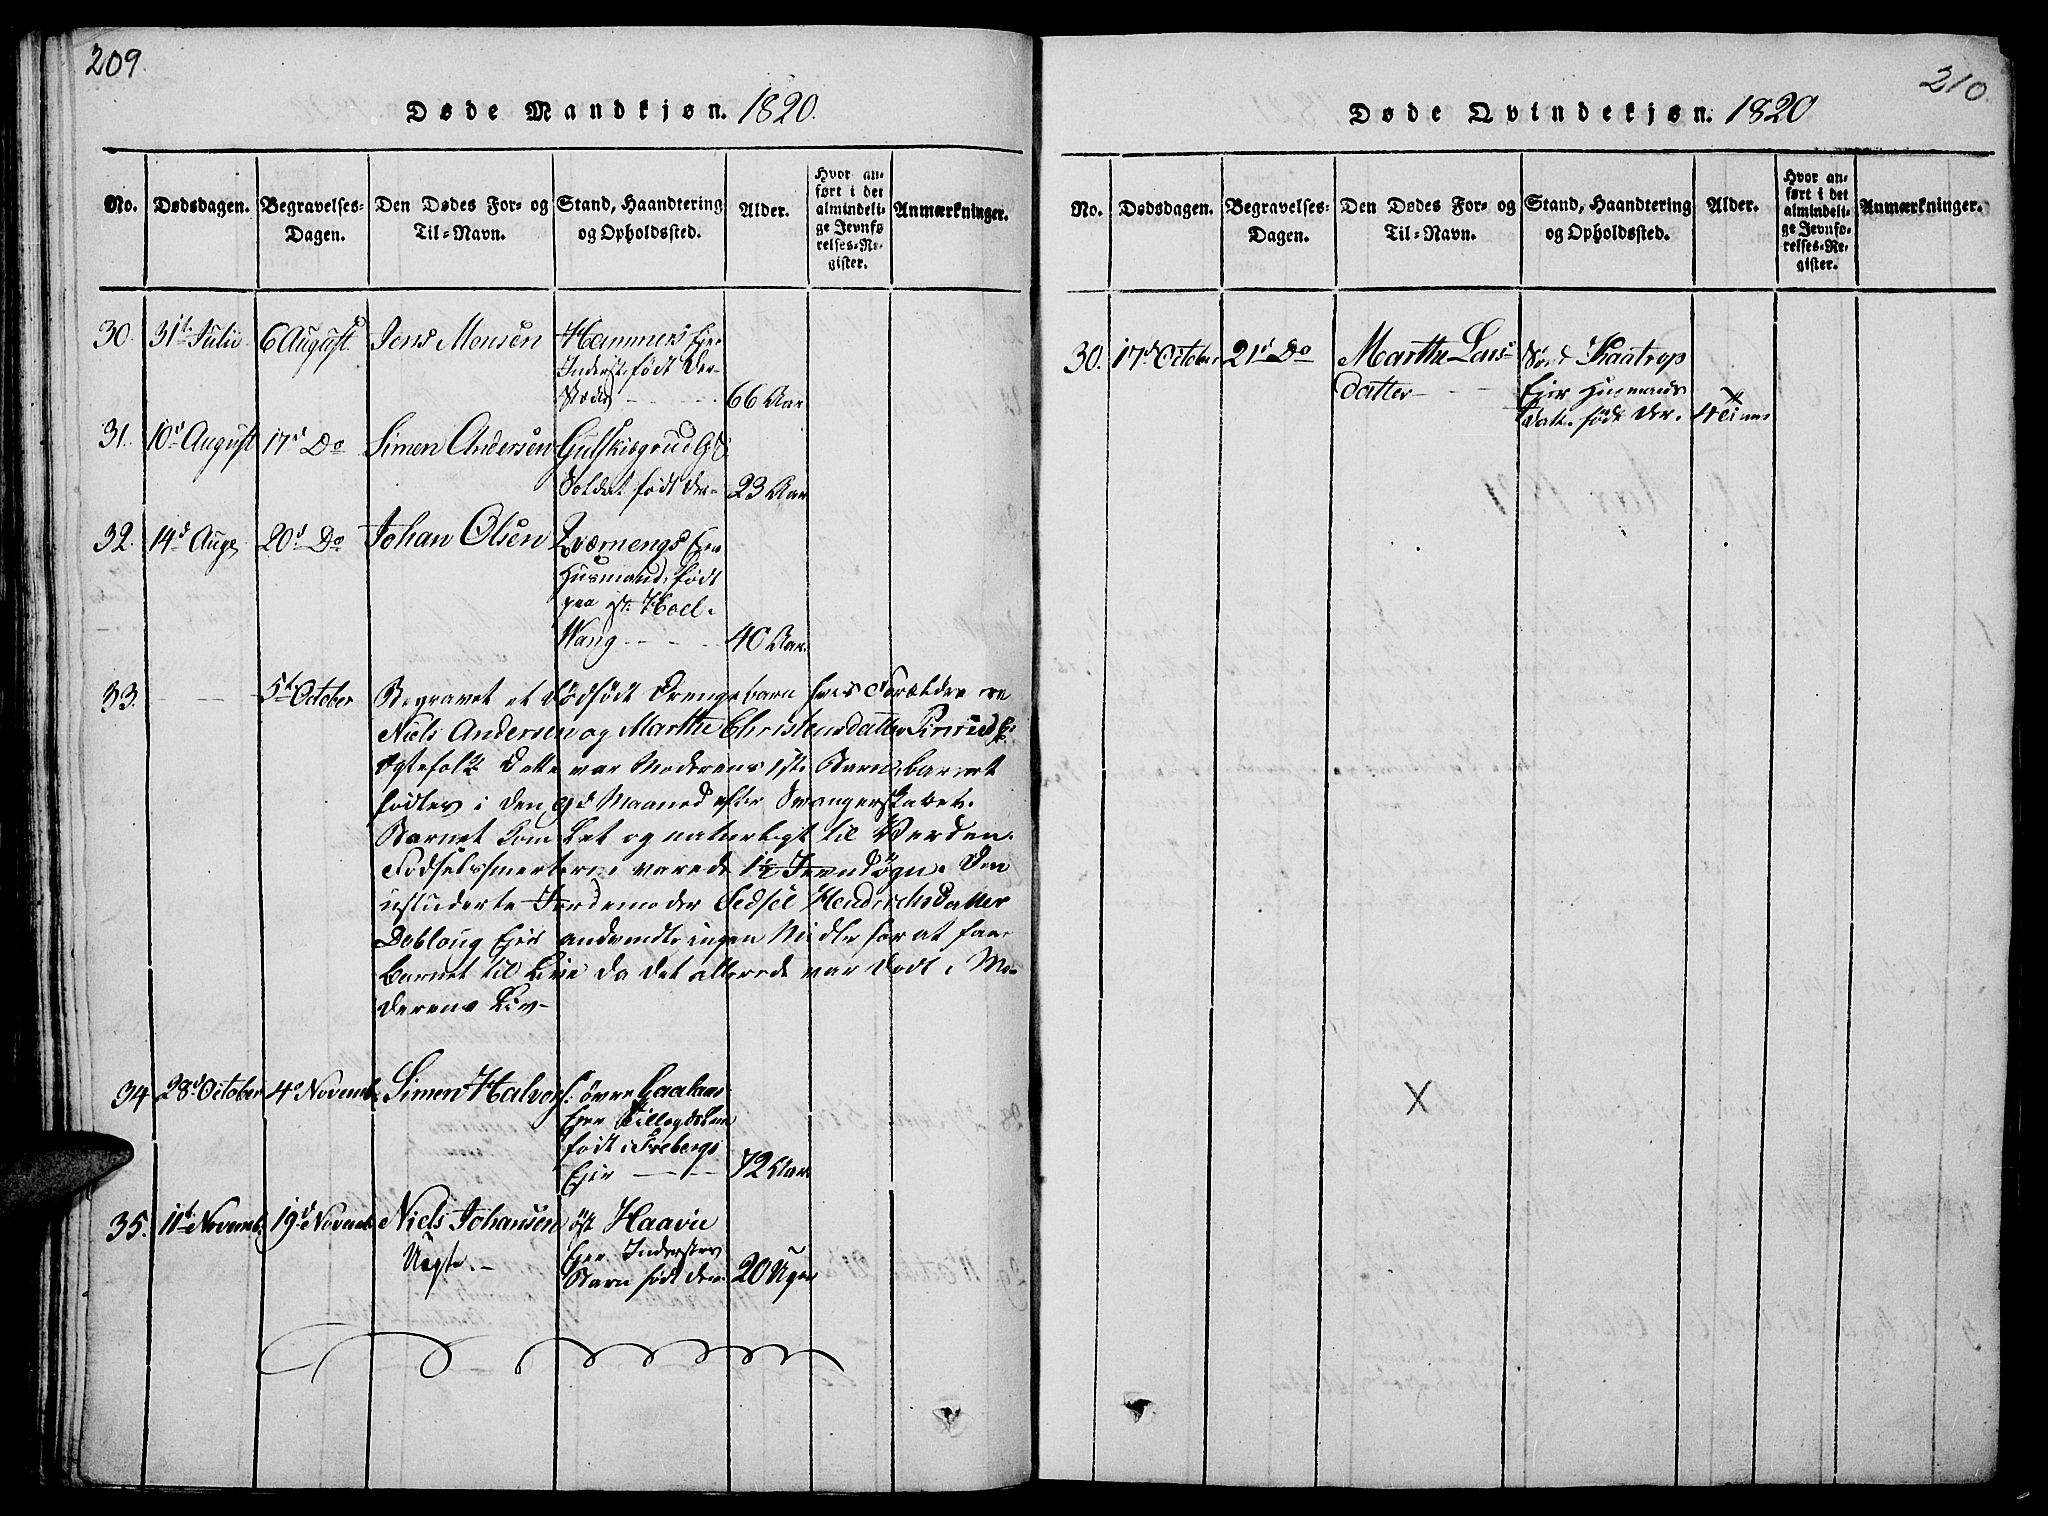 209.
Døde Mandkjøn. 1820.
No.
Dødsdagen.
Begravelses-
Dagen.
Den Dødes For- og
Til-Navn.
Stand, Haandtering
og Opholdssted.
Alder.
Hvor an-
ført i det
almindeli-
ge Jevnfø-
relses-Re-
gister.
Anmærkninger.
30. 31t Julii 6 August Jens Monsen Hammers Eje
Inderst, født der-
Stædes 66 Aar
31. 10d August 17d Do Simen Andersen
Soldat født der 23 Aar
32. 14d Aug 20d Do Johan Olsen Qværnengs Eje
Husmand, født
paa øst: Hoel-
Wang 40 Aar.
33. 5t October Begravet et dødfødt Drengebarn hvis Forældre ere
Niels Andersen og Marthe Christensdatter
Ægtefolk Dette var Moderens 1ste Barn, barnet
fødtes i den 9d Maaned efter Svangerskabet.
Barnet kom let og naturligt til Verden.
Fødselssmerterne varede 1½ Døgn. Den
ustuderte Jordemoder Sedsel Hendrichsdatter
Debloug Ejer anvendte ingen Midler for at faae
barnet til Live da det allerede var dødt i Mo-
derens Liv-
34 28d October 4d Novemb. Simen Halvors: øvre Gaalaas
Eje
født i Freberg
Ejer 72 Aar
35. 11t Novemb. 19d Novemb. Niels Johansen øst Haavie
Uægte. - Eje Inderstes
Barn født der 20 Uger
210.
Døde Qvindekjøn. 1820
No.
Dødsdagen.
Begravelses-
Dagen.
Den Dødes For- og
Til-Navn.
Stand, Haandtering
og Opholdssted.
Alder.
Hvor an-
ført i det
almindeli-
ge Jevnfø-
relses-Re-
gister.
Anmærkninger.
30. 17d October 21d Do Marthe Lars-
datter Skattrop
Ejer Husmands
Datt. født der.
X